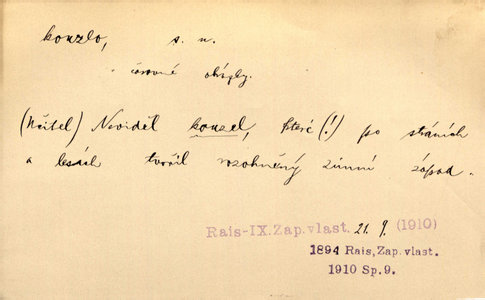 kouzlo, s. n.
čarovné obrazy.
(Učitel) Neviděl kouzel, které (!) po stráních
a lesích tvořil rozohněný zimní západ.
Rais-IX.Zap.vlast. 21. 9. (1910)
1894 Rais, Zap. vlast.
1910 Sp. 9.